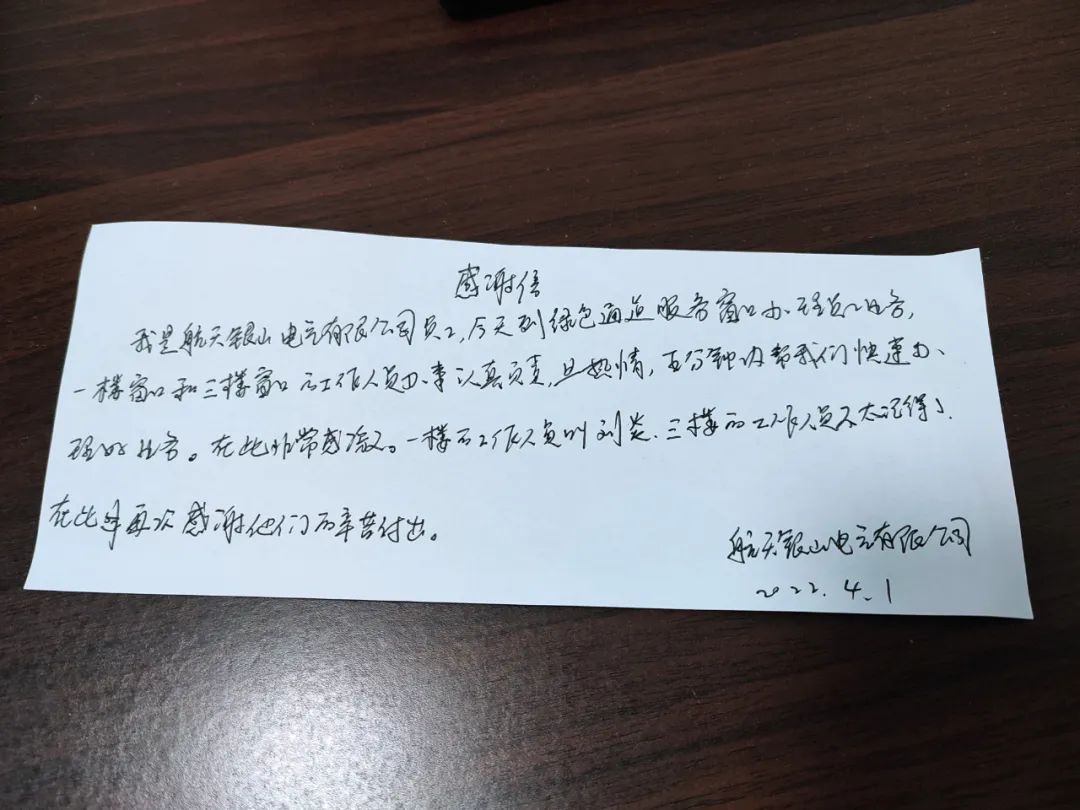 感谢信
我是航天银山电气有限公司员工,今天到绿色通道服务窗口办理业务,
一楼窗口和三楼窗口的工作人员办事认真负责,且热情,五分钟内帮我们快速办
理好业务。在此非常感激。一楼的工作人员叫刘炎、三楼的工作人员不太记得了.
在此再次感谢他们的辛苦付出。
航天银山电气有限公司
2022.4.1